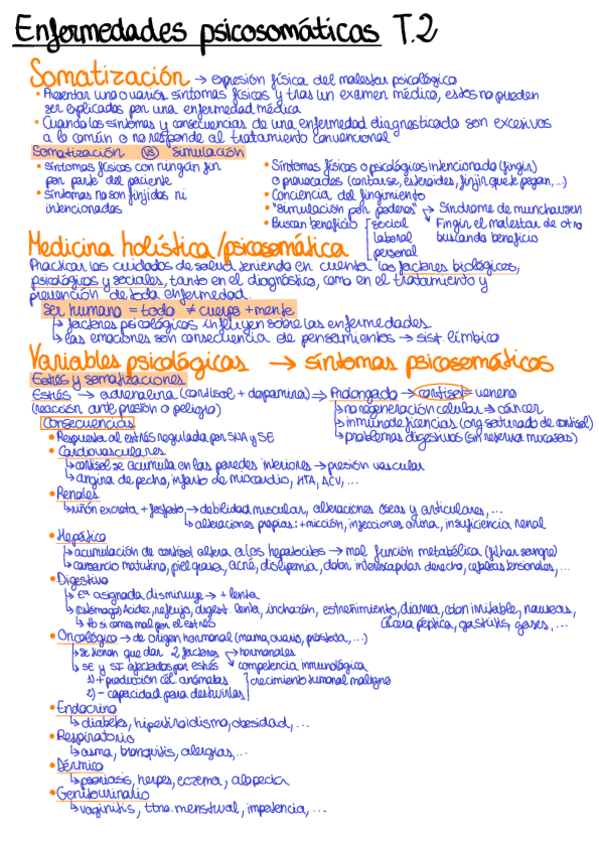 Enfermedades psicosomáticas T.2
Somatización → expresión física del malestar psicológico
• Presentar uno o varios síntomas físicos y tras un examen médico, estos no pueden
ser explicados por una enfermedad médica
• Cuando los síntomas y consecuencias de una enfermedad diagnosticada son excesivos
a lo común o no responde al tratamiento convencional
Somatización VS simulación
• síntomas físicos con ningún fin
por parte del paciente
• síntomas no son finjidos ni
intencionados
• Síntomas físicos o psicológicos intencionada (fingir)
o provocados (cortarse, esteroides, finjir que te pegan,...)
• Conciencia del fingimiento
• "simulación por poderes" → Síndrome de munchausen
• Buscan beneficio social Fingir el malestar de otro
laboral buscando beneficio
personal
Medicina holística/psicosomática
Practicar los cuidados de salud teniendo en cuenta los factores biológicos,
psicológicos y sociales, tanto en el diagnóstico, como en el tratamiento y
prevención de toda enfermedad
ser humano = todo ≠ cuerpo + mente
↳ factores psicológicos influyen sobre las enfermedades
↳ las emociones son consecuencia de pensamientos → sist. límbico
Variables psicológicas → síntomas psicosomáticos
Estrés y somatizaciones
Estrés → adrenalina (cortisol + dopamina) ⇒ Prolongado → cortisol = veneno
(reacción ante presión o peligro) ↳ no regeneración celular → cáncer
Consecuencias ↳ inmunodeficiencias (org saturado de cortisol)
• Respuesta al estrés regulada por SNA y SE ↳ problemas digestivos (sin reserva mucosas)
• Cardiovasculares
↳ cortisol se acumula en las paredes interiores → presión vascular
↳ angina de pecho, infarto de miocardio, HTA, ACV, ...
• Renales
↳ riñón excreta + fosfato → debilidad muscular, alteraciones óseas y articulares, ...
↳ alteraciones propias: + micción, infecciones orina, insuficiencia renal
• Hepático
↳ acumulación de cortisol altera a los hepatocitos → mal función metabólica (filtrar sangre)
↳ cansancio matutino, piel grasa, acné, dislipemia, dolor interescapular derecho, cefaleas tensionales, ...
• Digestivo
↳ Eª asignada disminuye → + lenta
↳ (estómago) Acidez, reflujo, digest. lenta, inchazón, estreñimiento, diarrea, colon irritable, nauseas,
↳ tb si comes mal por el estrés úlcera péptica, gastritis, gases, ...
• Oncológico → de origen hormonal (mama, ovario, próstata, ...)
↳ se tienen que dar 2 factores → hormonales
↳ SE y SI afectados por estrés ↘ competencia inmunológica
1) + producción cél. anómalas crecimiento tumoral maligno
2) - capacidad para destruirlas
• Endocrino
↳ diabetes, hipertiroidismo, obesidad, ...
• Respiratorio
↳ asma, bronquitis, alergias, ...
• Dérmico
↳ psoriasis, herpes, eczema, alopecia
• Genitourinario
↳ vaginitis, ttno. menstrual, impotencia, ...